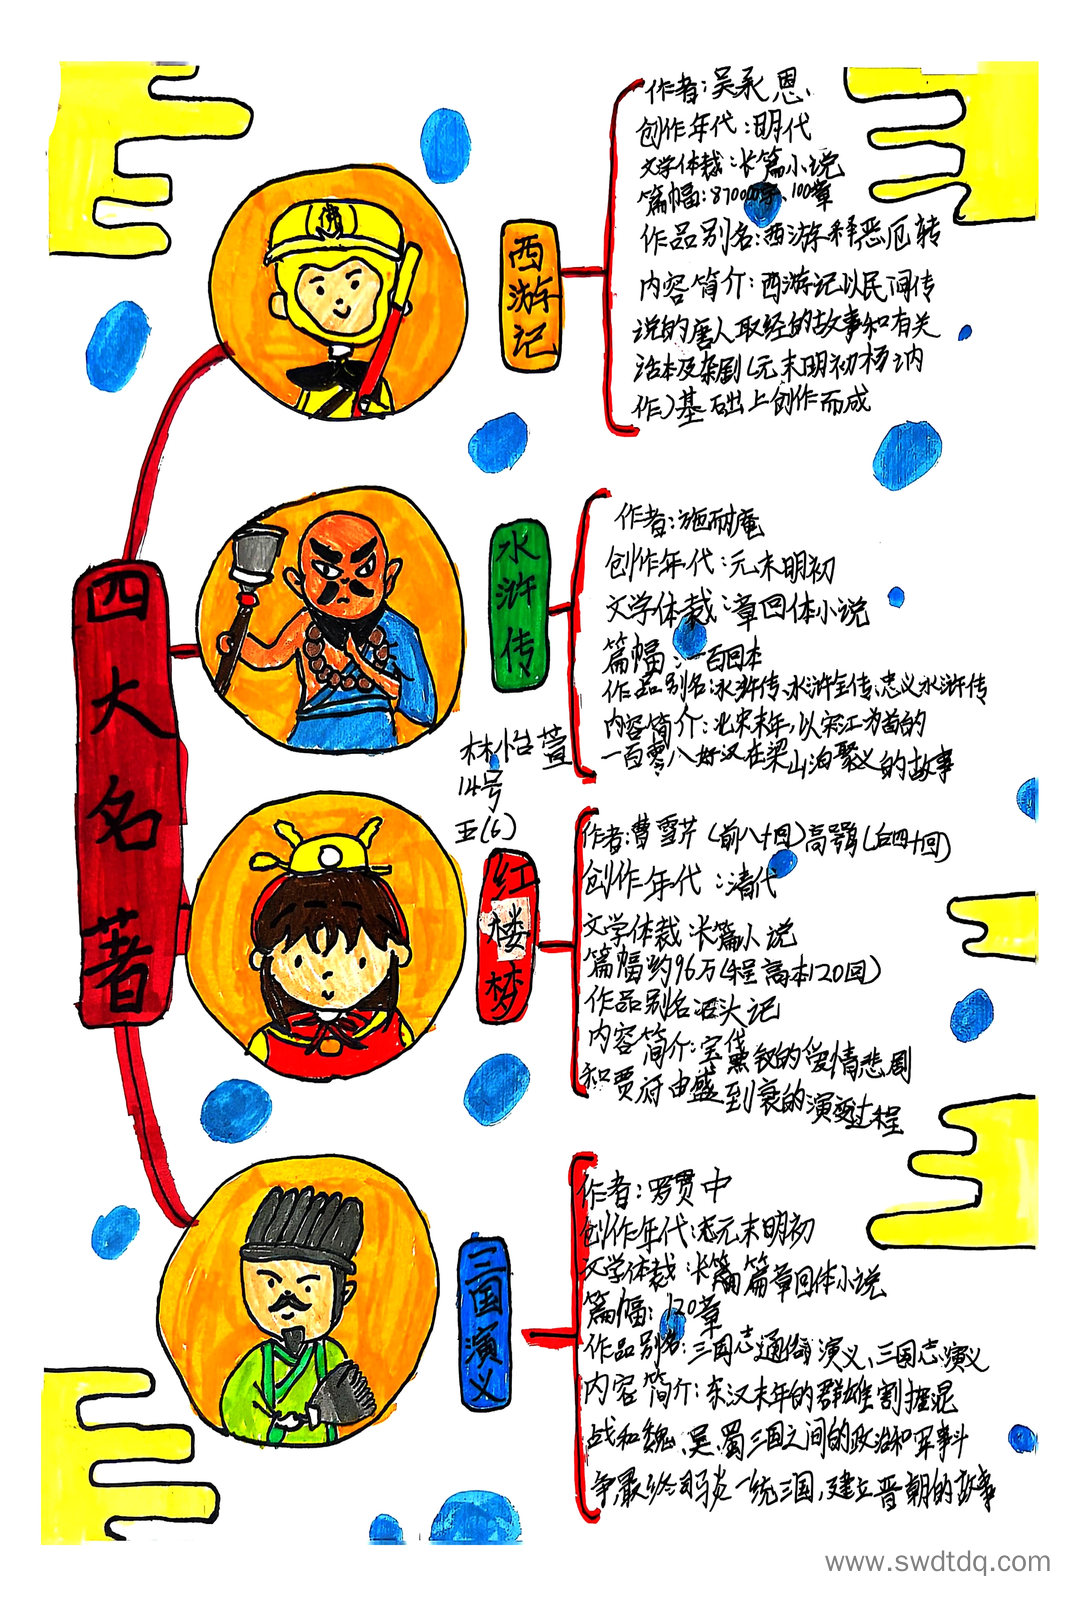 四大名著
西游记
作者:吴承恩
创作年代:明代
文学体裁:长篇小说
篇幅:87000字、100章
作品别名:西游释恶厄转
内容简介:西游记以民间传
说的唐人取经的故事和有关
话本及杂剧(元末明初杨讷
作)基础上创作而成
水浒传
作者:施耐庵
创作年代:元末明初
文学体裁:章回体小说
篇幅:一百回本
作品别名:水浒传、水浒全传、忠义水浒传
内容简介:北宋末年,以宋江为首的
一百零八好汉在梁山泊聚义的故事
林怡萱
14号
五(6)
红楼梦
作者:曹雪芹(前八十回)高鹗(后四十回)
创作年代:清代
文学体裁:长篇小说
篇幅约96万(程高本120回)
作品别名石头记
内容简介:宝黛钗的爱情悲剧
和贾府由盛到衰的演变过程
三国演义
作者:罗贯中
创作年代:元末明初
文学体裁:长篇章回体小说
篇幅:120章
作品别名:三国志通俗演义、三国志演义
内容简介:东汉末年的群雄割据混
战和魏、吴、蜀三国之间的政治和军事斗
争,最终司马炎一统三国,建立晋朝的故事
www.swdtdq.com